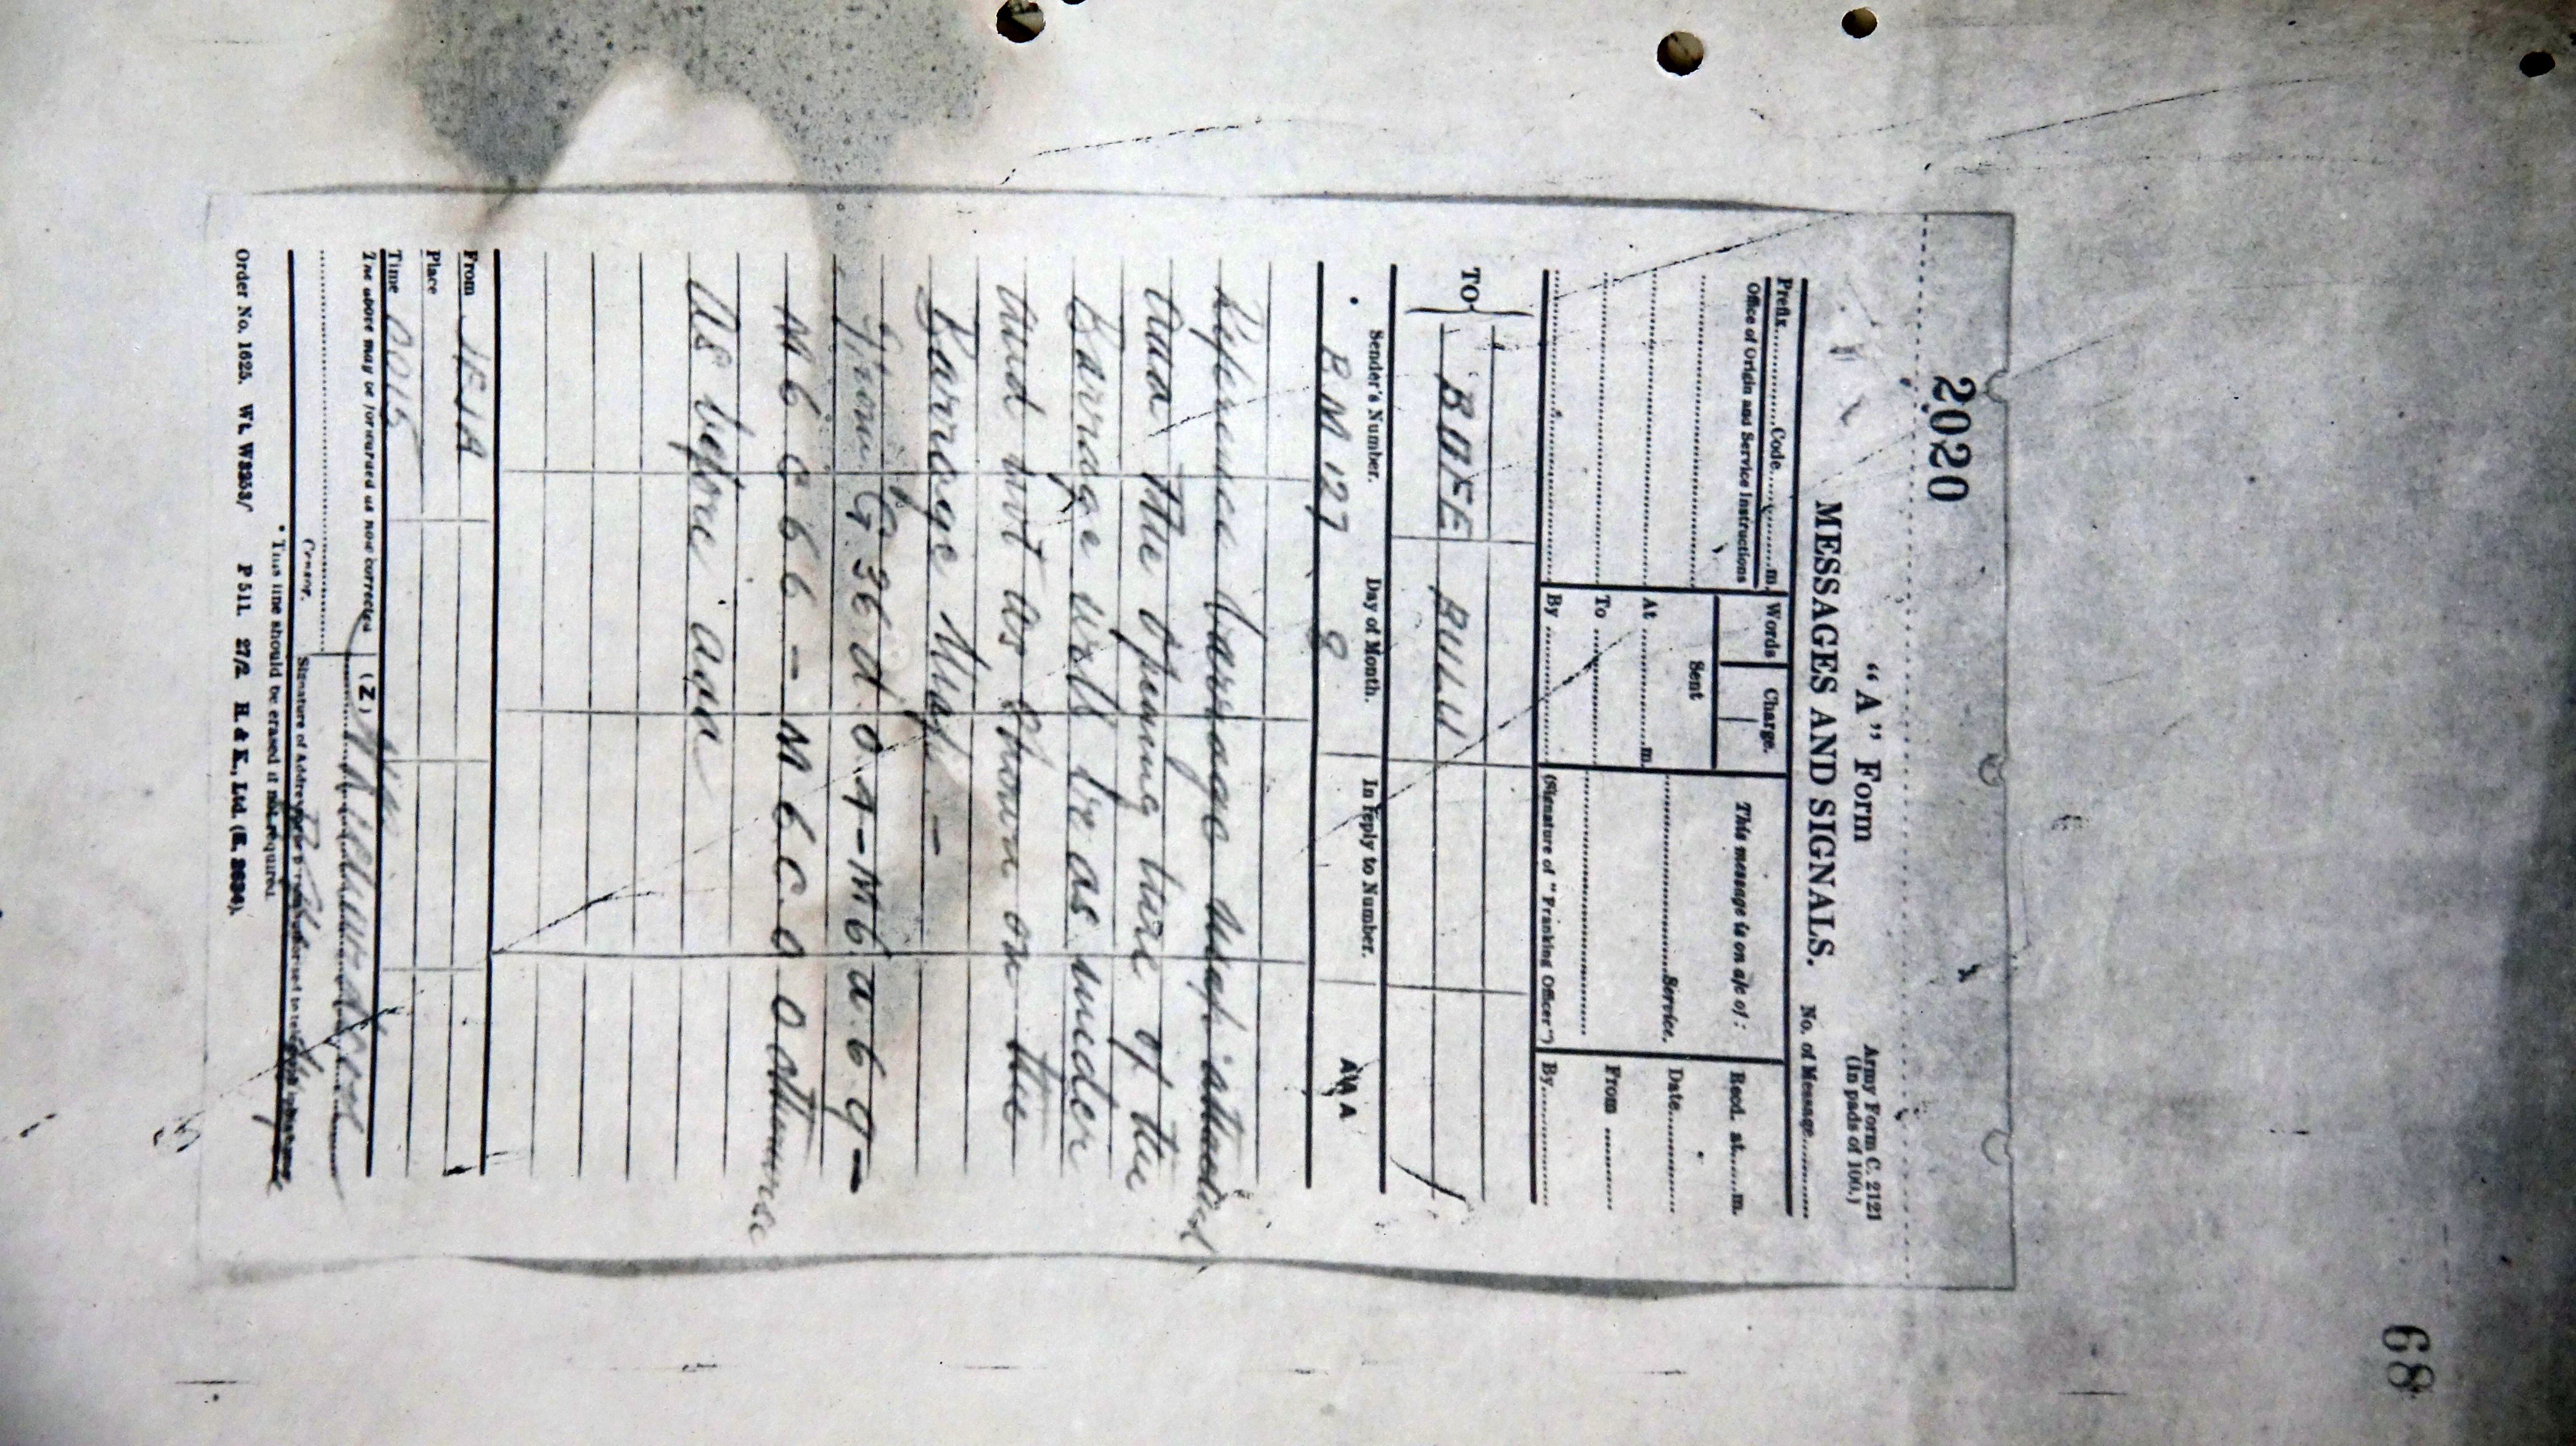 2020
68
"A" Form
Army Form C. 2121
(In pads of 100.)
MESSAGES AND SIGNALS.
No. of Message
Prefix Code m.
Office of Origin and Service Instructions
Words Charge.
Sent
At m.
To
By
This message is on a/c of :
Service.
(Signature of "Franking Officer")
Recd. at m.
Date
From
By
TO BOFE BULU
Sender's Number. Day of Month. In reply to Number. AAA
BM 127 8
Reference barrage map attached
aaa The opening line of the
Barrage will be as under
and not as shown on the
Barrage Map. —
From G 36 d 0.4 – M 6 a. 6 9 –
M 6 c 6 6 – M 6 c. 0 0 otherwise
as before aaa
From JESA
Place
Time 0015
The above may be forwarded as now corrected (Z)
Censor. Signature of
* This line should be erased if not required.
Order No. 1625. Wt. W3253/ P 511. 27/2 H. & K., Ltd. (E. 2634).